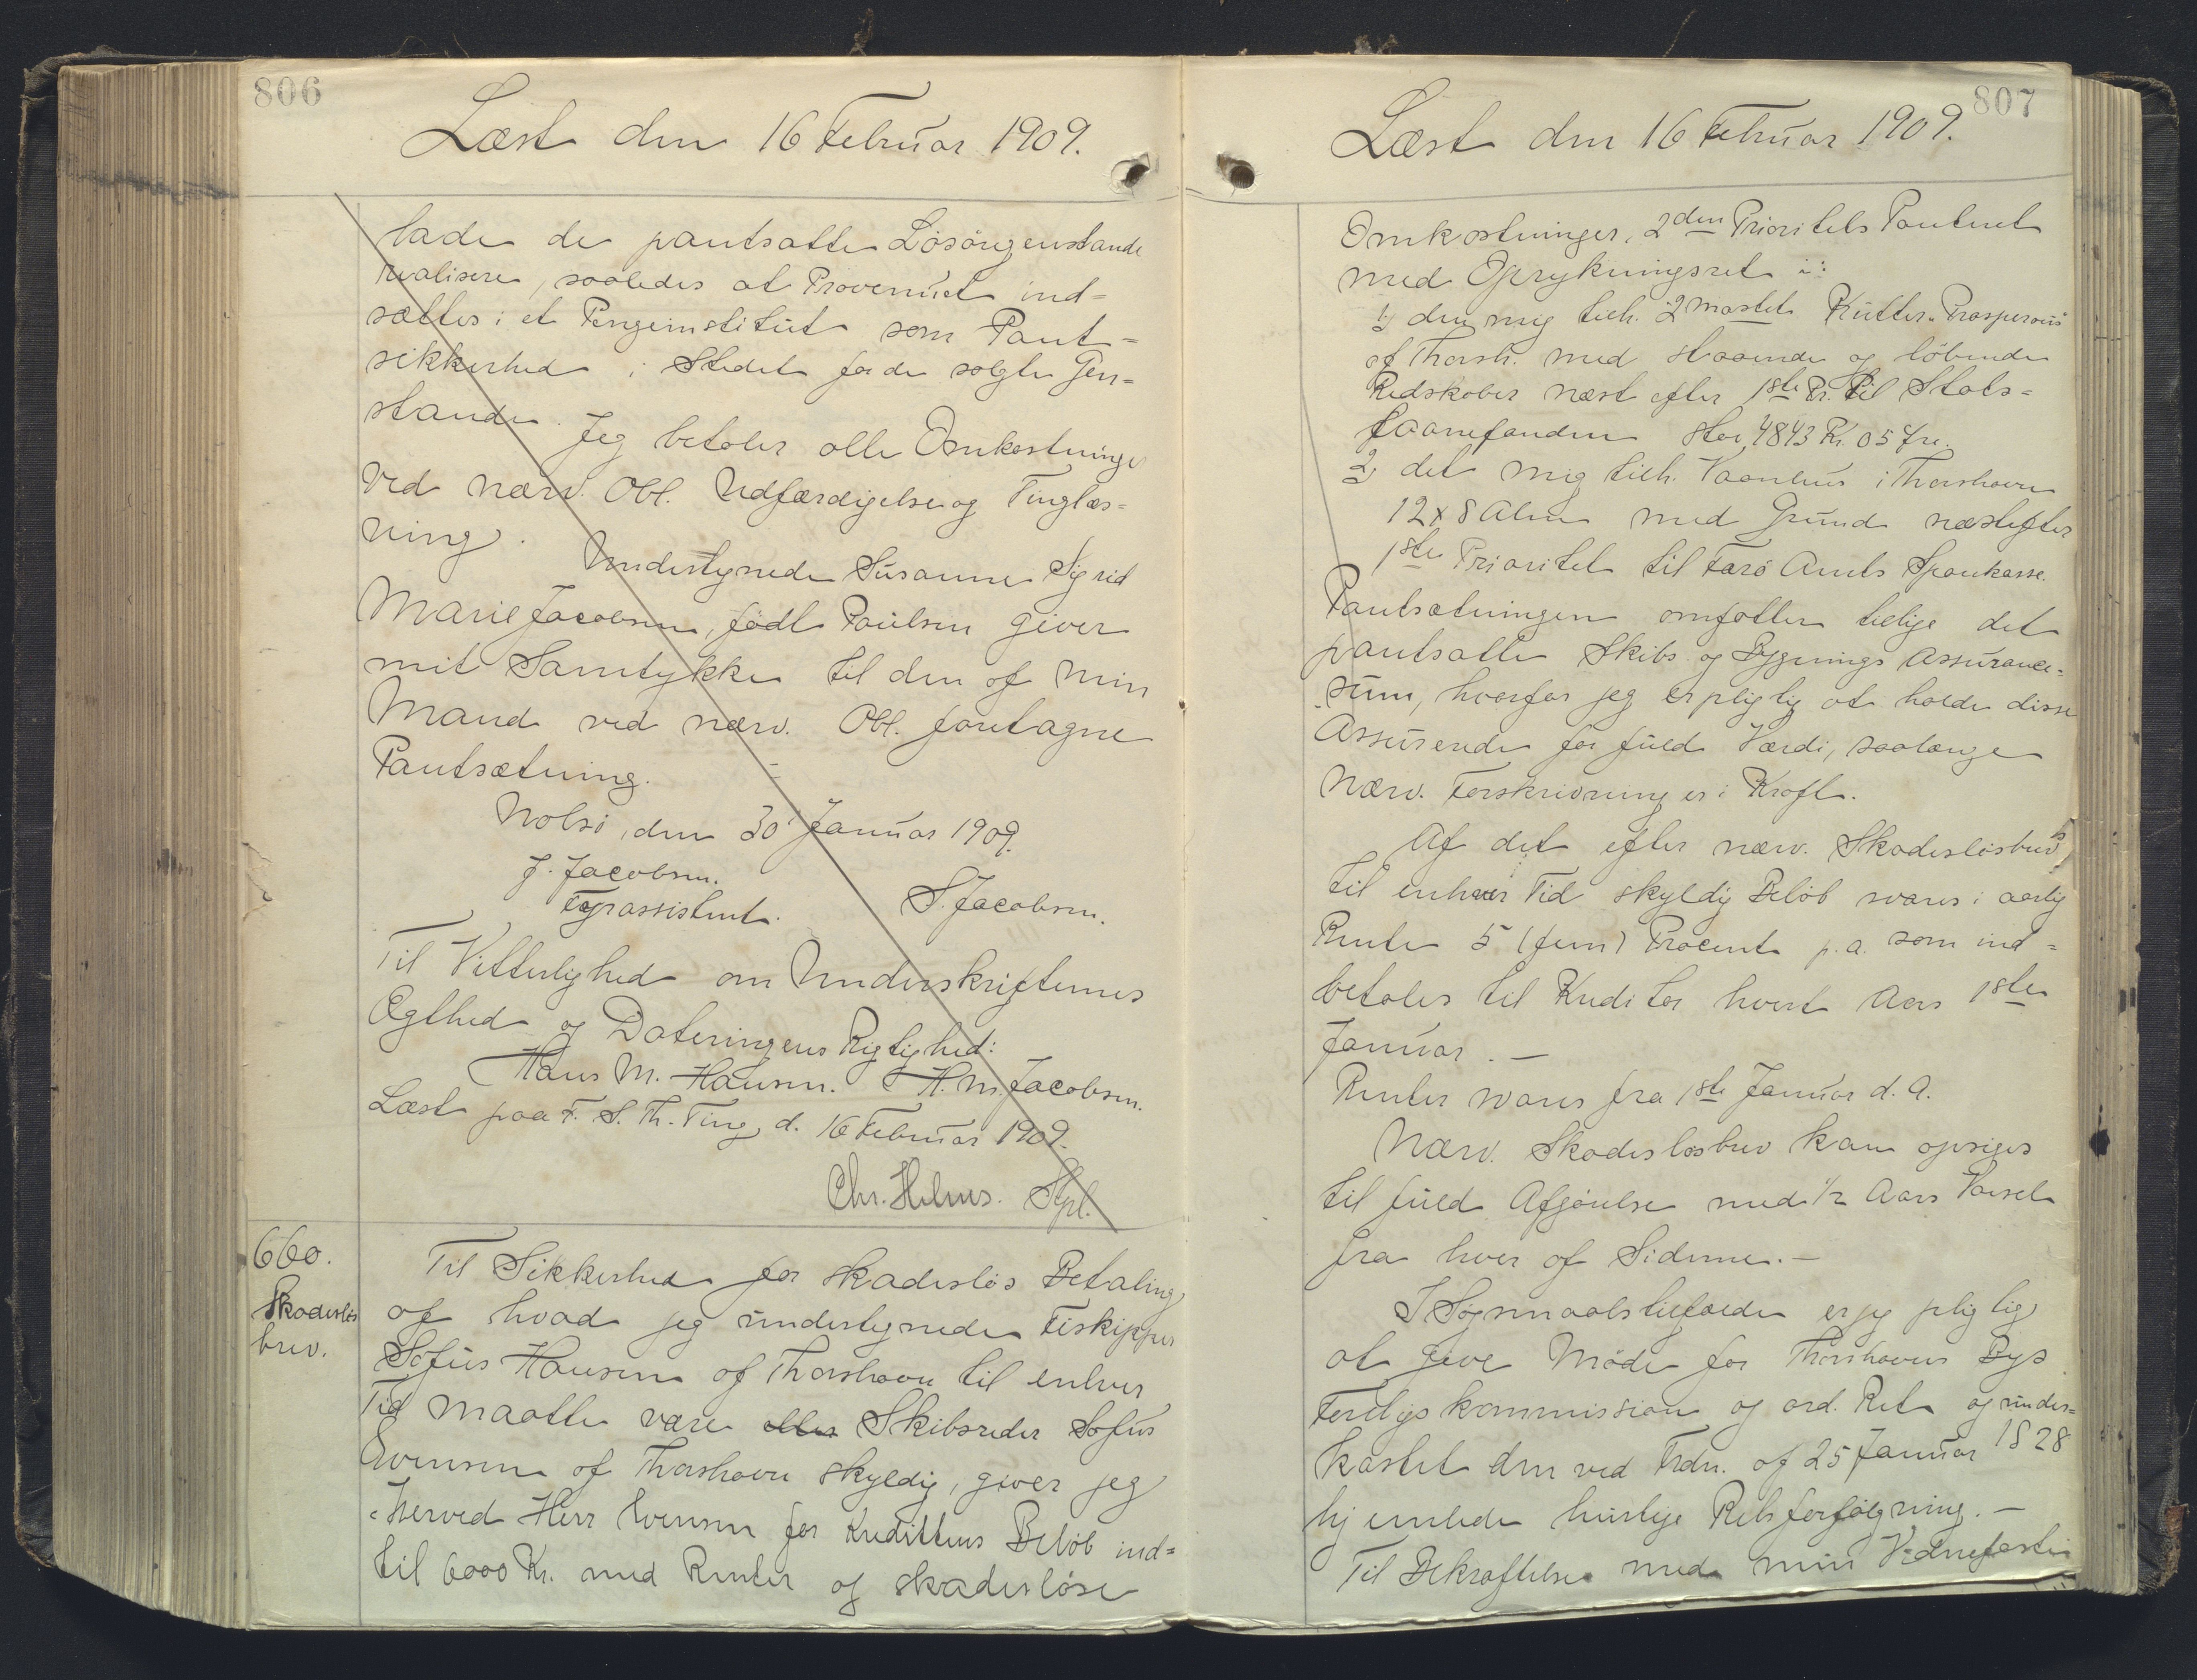 806
Læst den 16 Februar 1909.
lade de pantsatte Lösöregenstande
realisere, saaledes at Provenuet ind=
sættes i et Pengeinstitut som Pant=
sikkerhed i Stedet for de solgte Gen=
stande. Jeg betaler alle Omkostninger
ved nærv. Obl. Udfærdigelse og Tinglæs=
ning.
Undertegnede Susanne Sigrid
Marie Jacobsen, födt Poulsen giver
mit Samtykke til den af min
Mand ved nærv. Obl. foretagne
Pantsætning.
Nolsö, den 30' Januar 1909.
J. Jacobsen.
Fyrassistent.
S. Jacobsen.
Til Vitterlighed om Underskrifternes
Ægthed og Dateringens Rigtighed:
Hans M. Hansen. H. M. Jacobsen.
Læst paa F. S. Th. Ting, d. 16 Februar 1909.
Chr. Helms. Stpl.
660.
Skadeslös
brev.
Til Sikkerhed for skadeslös Betaling
af hvad jeg undertegnede Fiskipper
Sofus Hansen af Thorshavn til enhver
Tid maatte være eller Skibsreder Sofus
Evensen af Thorshavn skyldig, giver jeg
herved Herr Evensen for Kredittens Belöb ind=
til 6000 Kr. med Renter og skadeslöse
807
Læst den 16 Februar 1909.
Omkostninger, 2den Prioritets Panteret
med Oprykningsret i:
1, den mig tilh. 2 mastet Kutter "Prosperous"
af Thorsh. med staaende og löbende
Redskaber næst efter 1ste Pr. til Stats=
laanefonden stor 4843 Kr. 05 Øre.
2, det mig tilh. Vaanhus i Thorshavn
12 x 8 Alen med Grund næstefter
1ste Prioritet til Færö Amts Sparekasse.
Pantsætningen omfatter tillige det
pantsatte Skibs og Bygnings Assurance=
sum, hvorfor jeg er pligtig at holde disse
Assurerede for fuld Værdi, saalænge
nærv. Forskrivning er i Kraft.
Af det efter nærv. Skadeslösbrev
til enhver Tid skyldig Belöb svares i aarlig
Rente 5 (fem) Procent p. a. som ind=
betales til Kreditor hvert Aars 1ste
Januar. —
Renter svares fra 1ste Januar d. A.
Nærv. Skadeslösbrev kan opsiges
til fuld Afgörelse med 1/2 Aars Varsel
fra hver af Siderne. —
I Sögsmaalstilfælde er jeg pligtig
at give Möde for Thorshavns Bys
Forligskommission og ord. Ret og under=
kastet den ved Frdn. af 25 Januar 1828
hjemlede hurtige Retsforfölgning. —
Til Bekræftelse med min Vidnefaste